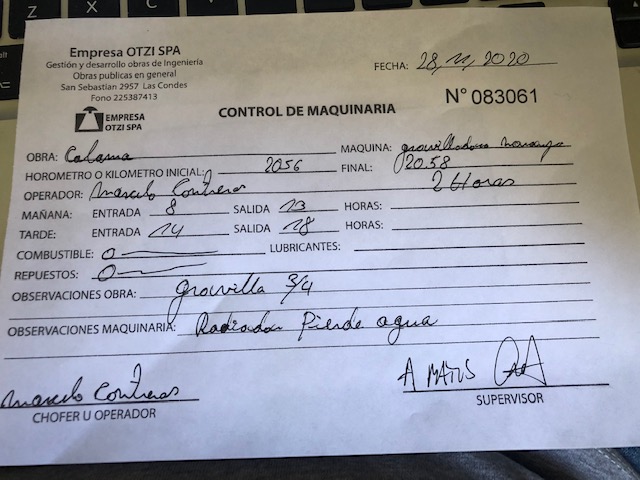 Empresa OTZI SPA
Gestión y desarrollo obras de Ingeniería
Obras publicas en general
San Sebastian 2957 - Las Condes
Fono 225387413
EMPRESA
OTZI SPA
FECHA: 28/11/2020
CONTROL DE MAQUINARIA N° 083061
OBRA: Calama MAQUINA: gravilladora
HOROMETRO O KILOMETRO INICIAL: 2056 FINAL: 2058
OPERADOR: Contreras 2 Horas
MAÑANA: ENTRADA 8 SALIDA 13 HORAS:
TARDE: ENTRADA 14 SALIDA 18 HORAS:
COMBUSTIBLE: 0 LUBRICANTES:
REPUESTOS: 0
OBSERVACIONES OBRA: gravilla 3/4
OBSERVACIONES MAQUINARIA: Radiador Pierde agua
Contreras
CHOFER U OPERADOR
A MATUS
SUPERVISOR
Z
X
C